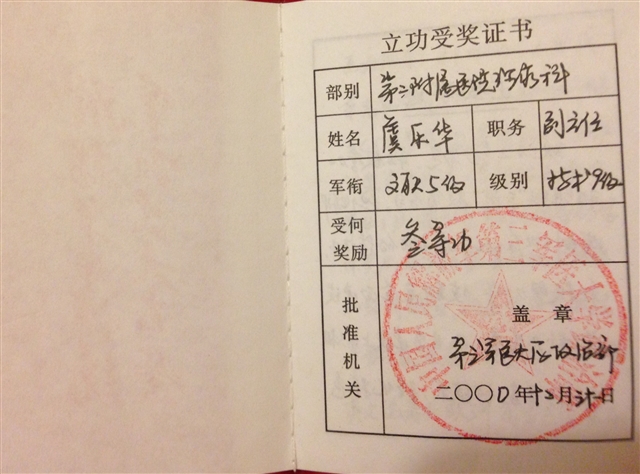 立功受奖证书
部别 第二附属医院
姓名 虞乐华 职务 副主任
军衔 文职5级 级别 技术9级
受何奖励 叁等功
批准机关
盖章
第三军医大学政治部
二〇〇〇年十二月三十一日